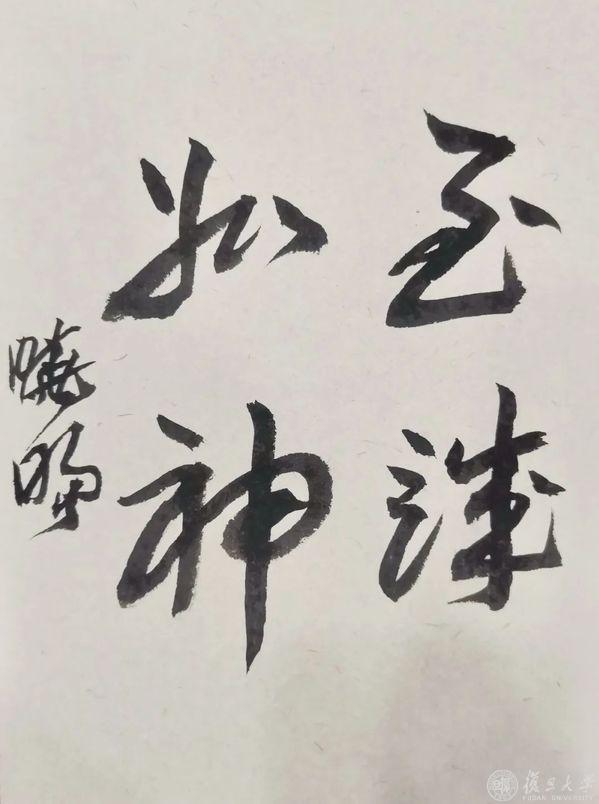 至诚
如神
晓明
復旦大学
FUDAN UNIVERSITY